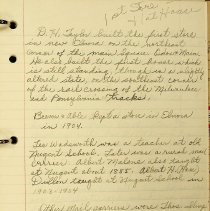 1st Store
+ 1st House
D. H. Taylor built the first store
in new Elnora on the northeast
corner of the main square. Edw. Main
Healy built the first house which
is still standing, though in a slightly
altered state, on the southeast corner
of the rail crossing of the Milwaukee
and Pennsylvania Tracks.
Brown & Able Kept a store in Elnora
in 1904.
Lee Wadsworth was a teacher at old
Nugent School. Later was a rural mail
carrier. Albert Malones also taught
at Nugent about 1885. Albert H. (Mac)
Dutton taught at Nugent School in
1903-1904
(the Mail carriers were Thos. Slimp